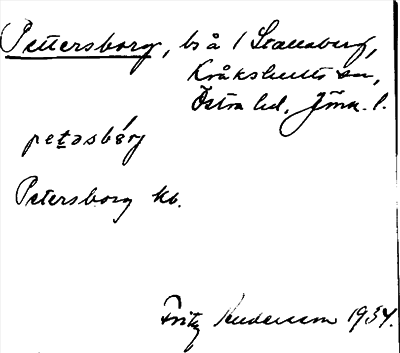 Pettersborg, bs å 1 Stallaberg,
Kråkshults sn,
Östra hd, Jönk. l.
petəsbórj
Petersborg kb.
Fritz Andersson 1934.